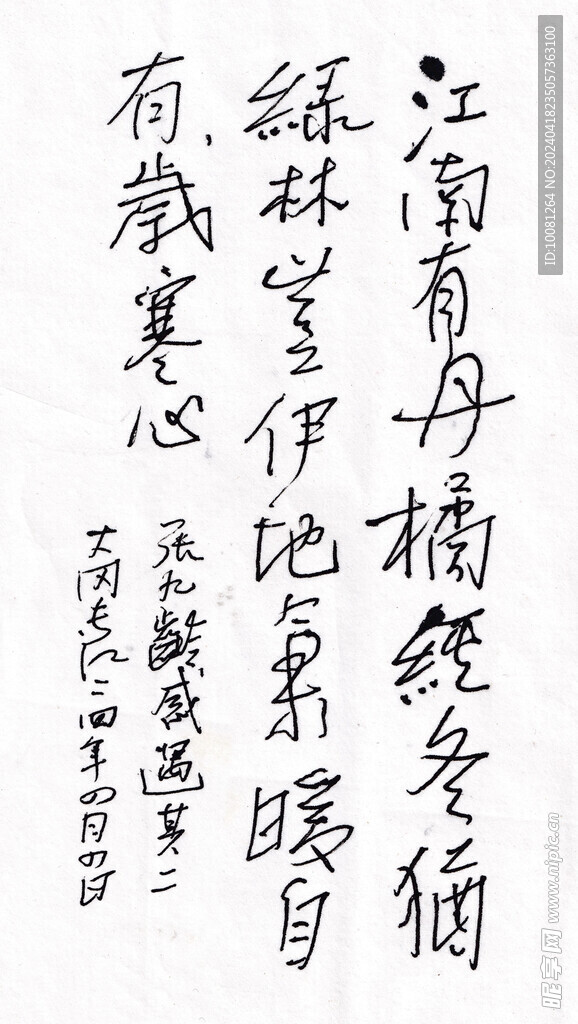 江南有丹橘經冬猶
綠林豈伊地氣暖自
有歲寒心
張九齡感遇其二
大冈长江二四年四月四日
ID:10081264 NO:20240418235057363100
昵享网 www.nipic.cn